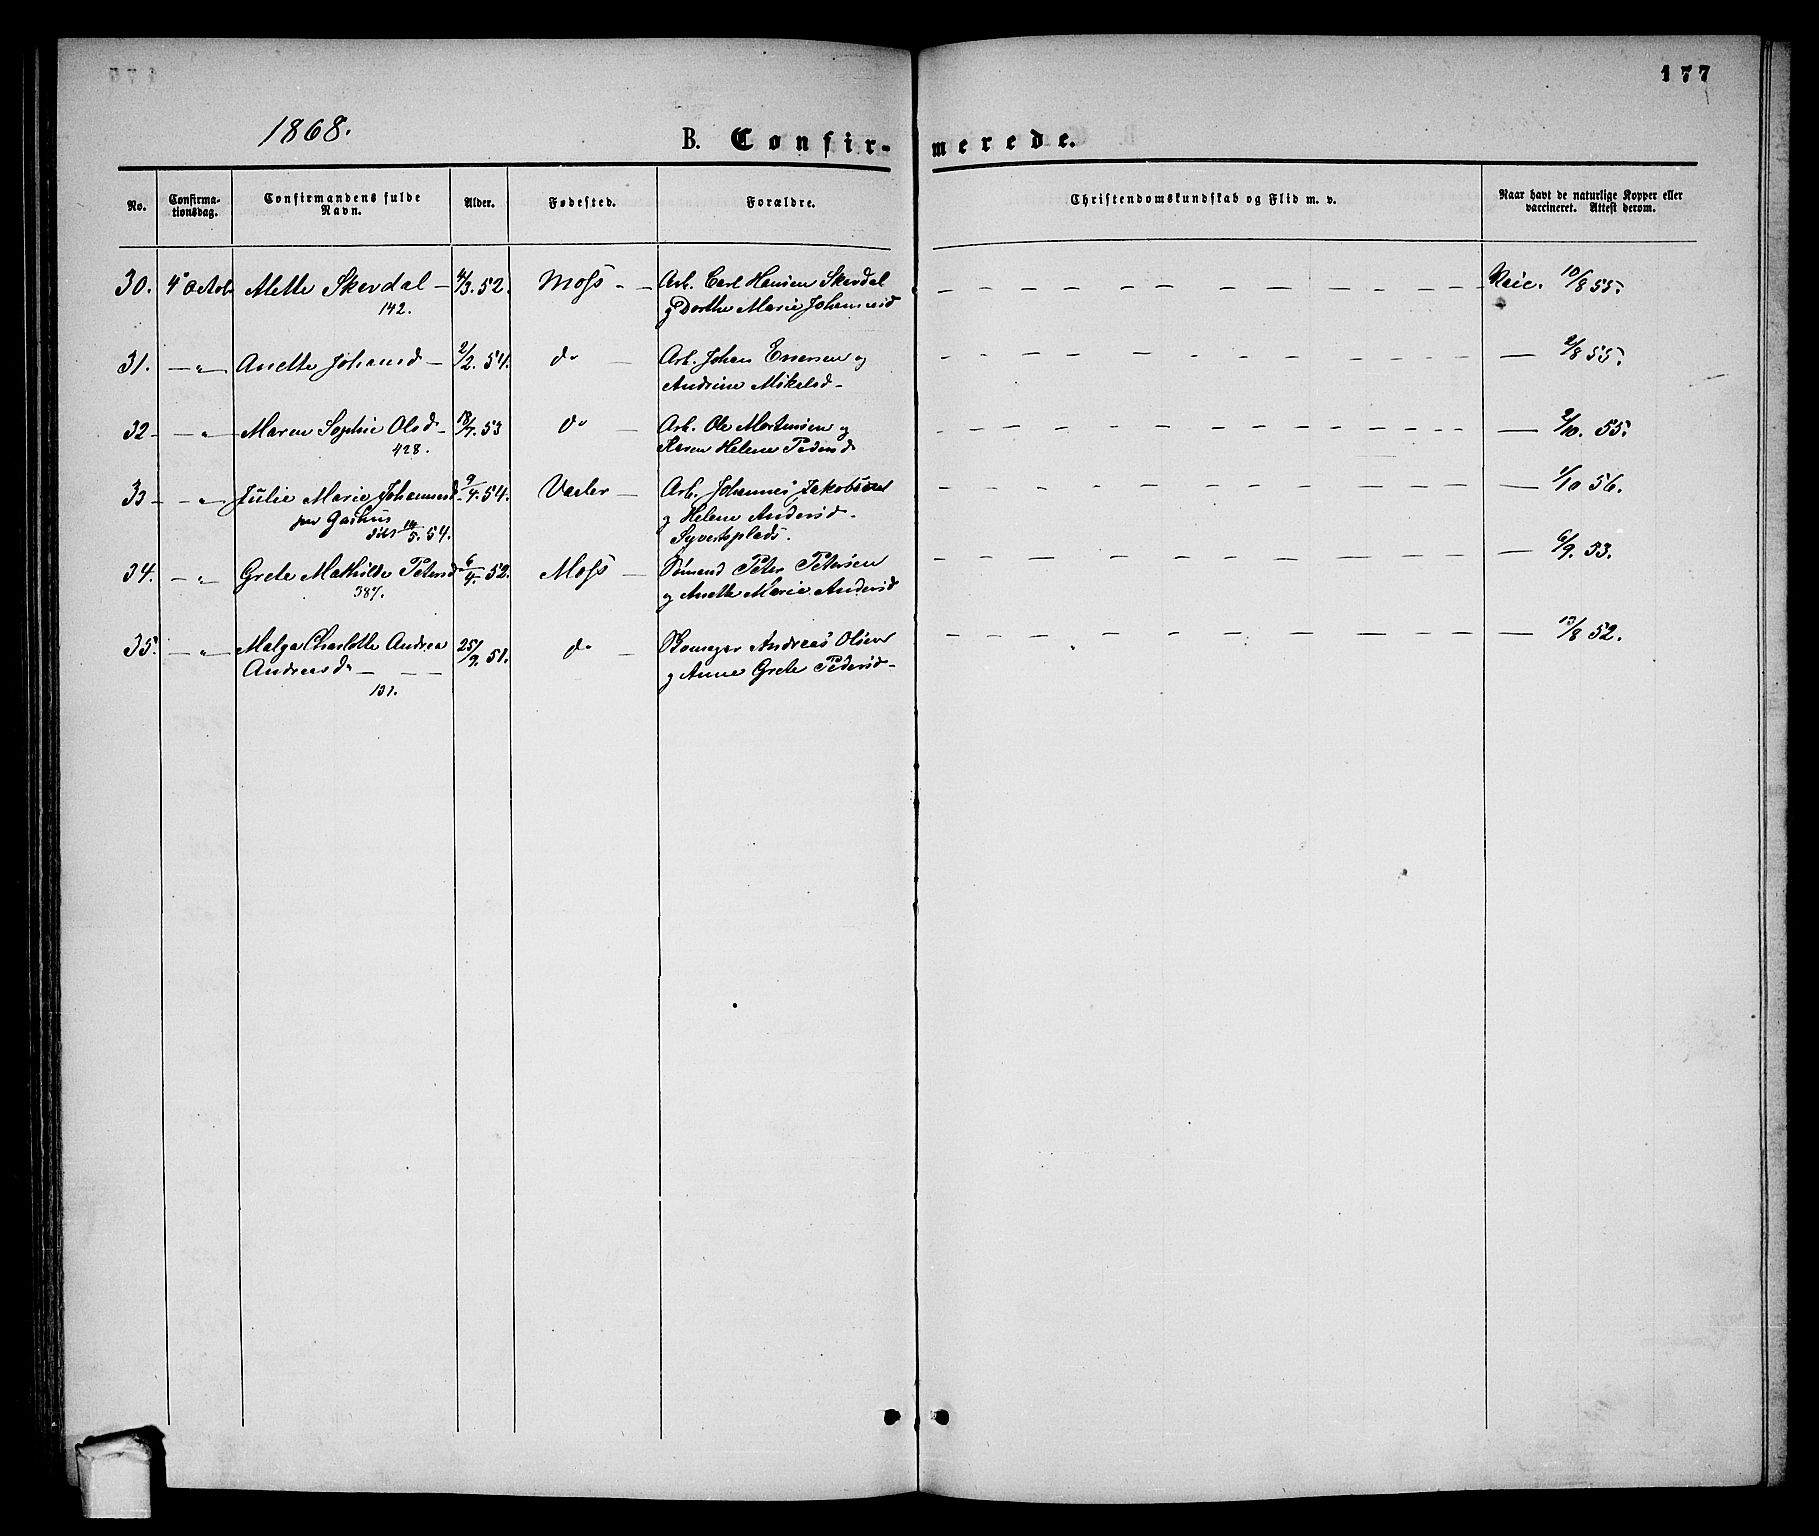 177
1868.
B. Confirmerede.
No.
Confirma-
tionsdag.
Confirmandens fulde
Navn.
Alder.
Fødested.
Forældre.
Christendomskundskab og Flid m. v.
Naar havt de naturlige Kopper eller
vaccineret. Attest derom.
30. 4de Octob. Mette Skevdal — 4/3. 52. Moss — Arb. Carl Hansen Skevdal 10/8 55.
142. og Dorthe Marie Johannesd
31. — " — Anette Johansd — 2/2. 54. do — Arb. Johan Evensen og — 2/8 55.
Andrine Mikelsd —
32 — " — Maren Sophie Olsd — 18/7. 53 do — Arb. Ole Mortensen og — 2/10. 55.
428. Karen Helene Pedersd
33 — " — Julie Marie Johannesd 9/4. 54. Vaaler — Arb. Johannes Jakobsen — 1/10 56.
og Helene Andersd —
5. 54. Syvertsplads.
34. — " — Grete Mathilde Petersd 6/4. 52. Moss — Peter Petersen — 6/9. 53.
387. og Anette Marie Andersd
35. — " — Charlotte Andrea 25/9. 51. do — Andreas Olsen — 13/8 52.
Andreasd — og Anne Grete Pedersd —
131.